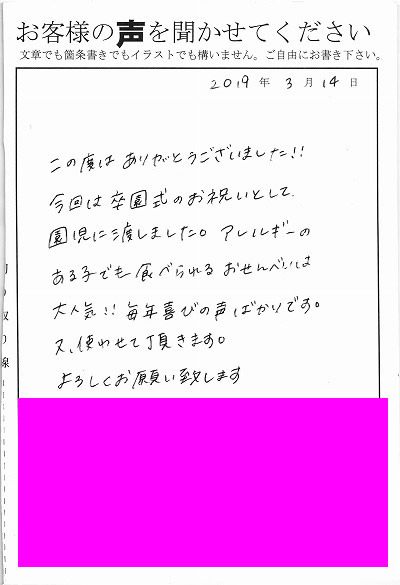 お客様の声を聞かせてください
文章でも箇条書きでもイラストでも構いません。ご自由にお書き下さい。
2019年3月14日
この度は ありがとうございました!!
今回は 卒園式のお祝いとして、
園児に渡しました。アレルギーの
ある子でも 食べられる おせんべいは
大人気!! 毎年喜びの声ばかりです。
又、使わせて頂きます。
よろしくお願い致します
切り取り線